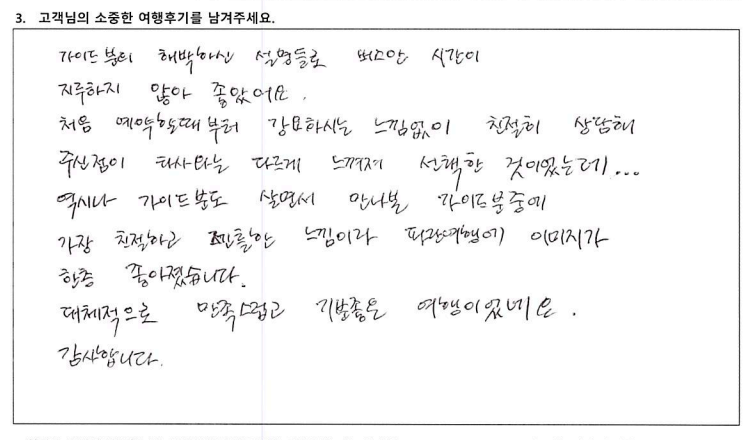 3. 고객님의 소중한 여행후기를 남겨주세요.
가이드 분의 해박하신 설명들로 버스안 시간이
지루하지 않아 좋았어요.
처음 예약할때부터 강요하시는 느낌없이 친절히 상담해
주신점이 타사와는 다르게 느껴져 선택한 것이었는데...
역시나 가이드분도 살면서 만나본 가이드분중에
가장 친절하고 느낌이라 여행에 이미지가
한층 좋아졌습니다.
대체적으로 만족스럽고 기분좋은 여행이었네요.
감사합니다.